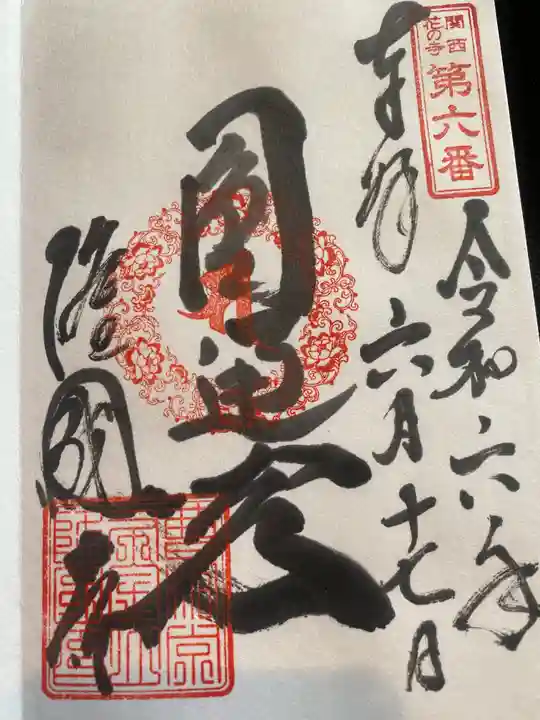 関西
花の寺
第六番
令和六年
奉拝
六月十七日
圓通
隆國寺